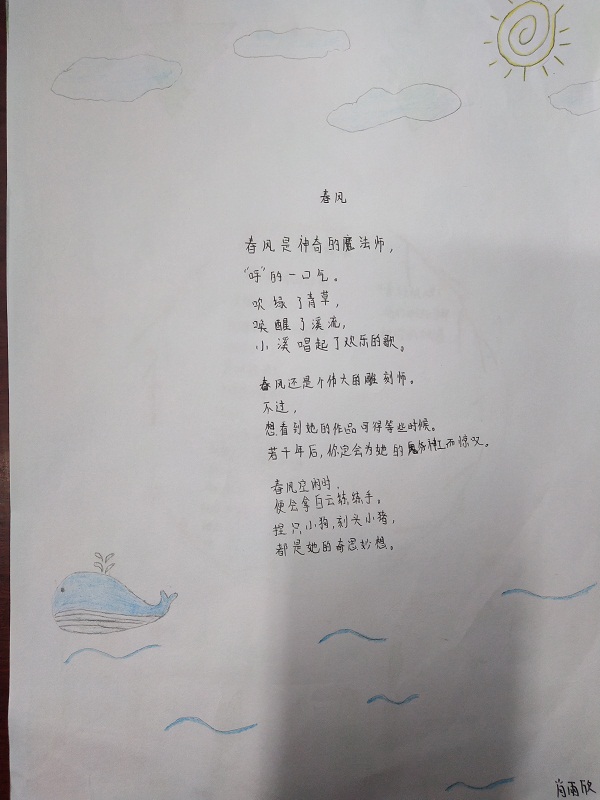 春风
春风是神奇的魔法师，
“呼”的一口气。
吹绿了青草，
唤醒了溪流，
小溪唱起了欢乐的歌。
春风还是个伟大的雕刻师。
不过，
想看到她的作品可得等些时候。
若干年后，你定会为她的鬼斧神工而惊叹。
春风空闲时，
便会拿白云练练手。
捏只小狗，刻头小猪，
都是她的奇思妙想。
肖雨欣